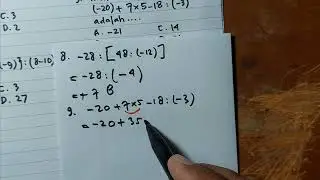 (-20) + 7 x 5 - 18 : (-3)
adalah ....
A. -21 C. 14
C. 3
D. 2
8. -28 : [48 : (-12)]
= -28 : (-4)
= + 7 B
9. -20 + 7x5 - 18 : (-3)
= -20 + 35
)} : (8-10)
C. 3
D. 27